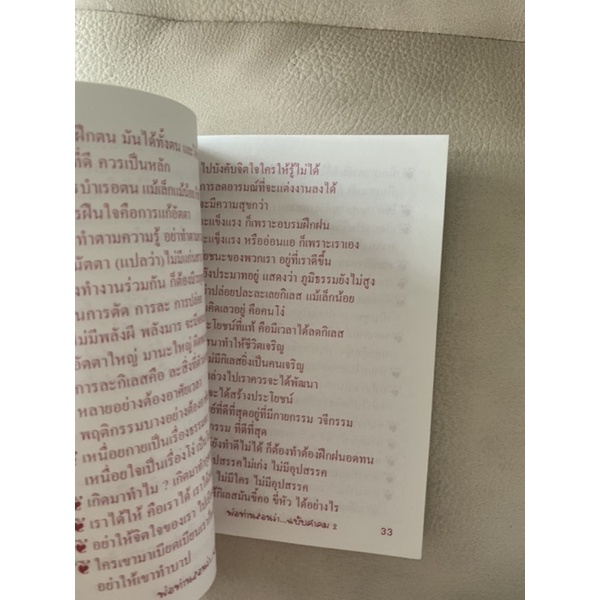 ฝึกตน มันได้ทั้งตน และ
ที่ดี ควรเป็นหลัก
รบำเรอตน แม้เล็กแม้น้อย
รฝืนใจคือการแก้อัตตา
ทำตามความรู้ อย่าทำตาม
นัตตา (แปลว่า)ไม่มีแก่น
งทำงานร่วมกัน ก็ต้องมี
ป็นการตัด การละ การปล่อย
ไม่มีพลังผี พลังมาร จะมี
อัตตาใหญ่ มานะใหญ่
การละกิเลสคือ ละสิ่งที่
หลายอย่างต้องอาศัยเวลา
พฤติกรรมบางอย่างต้อง
เหนื่อยกายเป็นเรื่องธรรม
เหนื่อยใจเป็นเรื่องโง่
เกิดมาทำไม ? เกิดมา
เราได้ให้ คือเราได้ เรา
อย่าให้จิตใจของเรา ไป
ใครเขามาเบียดเบียนเรา
อย่าให้เขาทำบาป
ไปบังคับจิตใจใครให้รู้ไม่ได้
การลดอารมณ์ที่จะแต่งงานลงได้
จะมีความสุขกว่า
จะแข็งแรง ก็เพราะอบรมฝึกฝน
ะแข็งแรง หรืออ่อนแอ ก็เพราะเราเอง
ยชนะของพวกเรา อยู่ที่เราดีขึ้น
ยังประมาทอยู่ แสดงว่า ภูมิธรรมยังไม่สูง
าปล่อยปละละเลยกิเลส แม้เล็กน้อย
คิดเลวอยู่ คือคนโง่
ะโยชน์ที่แท้ คือมีเวลาได้ลดกิเลส
นาทำให้ชีวิตเจริญ
ไม่มีกิเลสยิ่งเป็นคนเจริญ
ล่วงไปเราควรจะได้พัฒนา
จะได้สร้างประโยชน์
ย์ที่ดีที่สุดอยู่ที่มีกายกรรม วจีกรรม
กรรม ที่ดีที่สุด
ยังทำดีไม่ได้ ก็ต้องทำต้องฝึกฝนอดทน
ุปสรรคไม่เก่ง ไม่มีอุปสรรค
ไม่มีใคร ไม่มีอุปสรรค
กิเลสมันขี้คอ ขี่หัว ได้อย่างไร
33